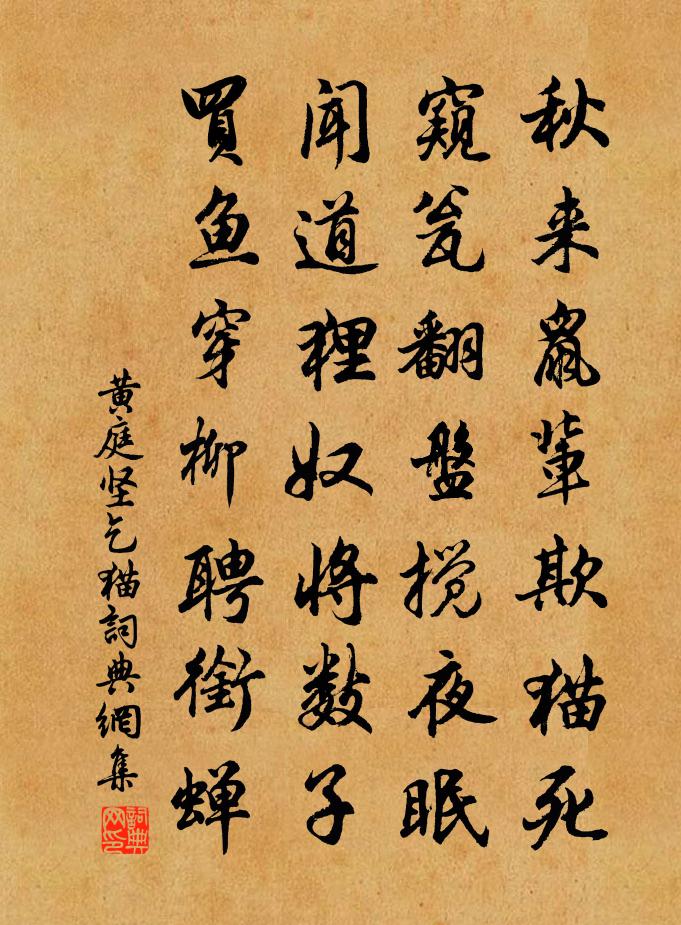 秋来鼠輩欺猫死
窺瓮翻盤搅夜眠
闻道狸奴将数子
買鱼穿柳聘銜蝉
黄庭坚乞猫詞典網集
詞典网印